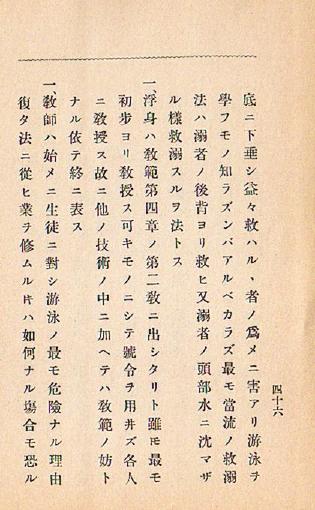 底ニ下垂シ益々救ハルヽ者ノ爲メニ害アリ游泳ヲ
學フモノ知ラズンバアルベカラズ最モ當流ノ救溺
法ハ溺者ノ後背ヨリ救ヒ又溺者ノ頭部水ニ沈マザ
ル樣救溺スルヲ法トス
一、浮身ハ敎範第四章ノ第二敎ニ出シタリト雖𪜈最モ
初步ヨリ敎授ス可キモノニシテ號令ヲ用井ズ各人
ニ敎授ス故ニ他ノ技術ノ中ニ加ヘテハ敎範ノ妨ト
ナル依テ終ニ表ス
一、敎師ハ始メニ生徒ニ對シ游泳ノ最モ危險ナル理由
復タ法ニ從ヒ業ヲ修ムル𬼀ハ如何ナル塲合モ恐ル
四十六